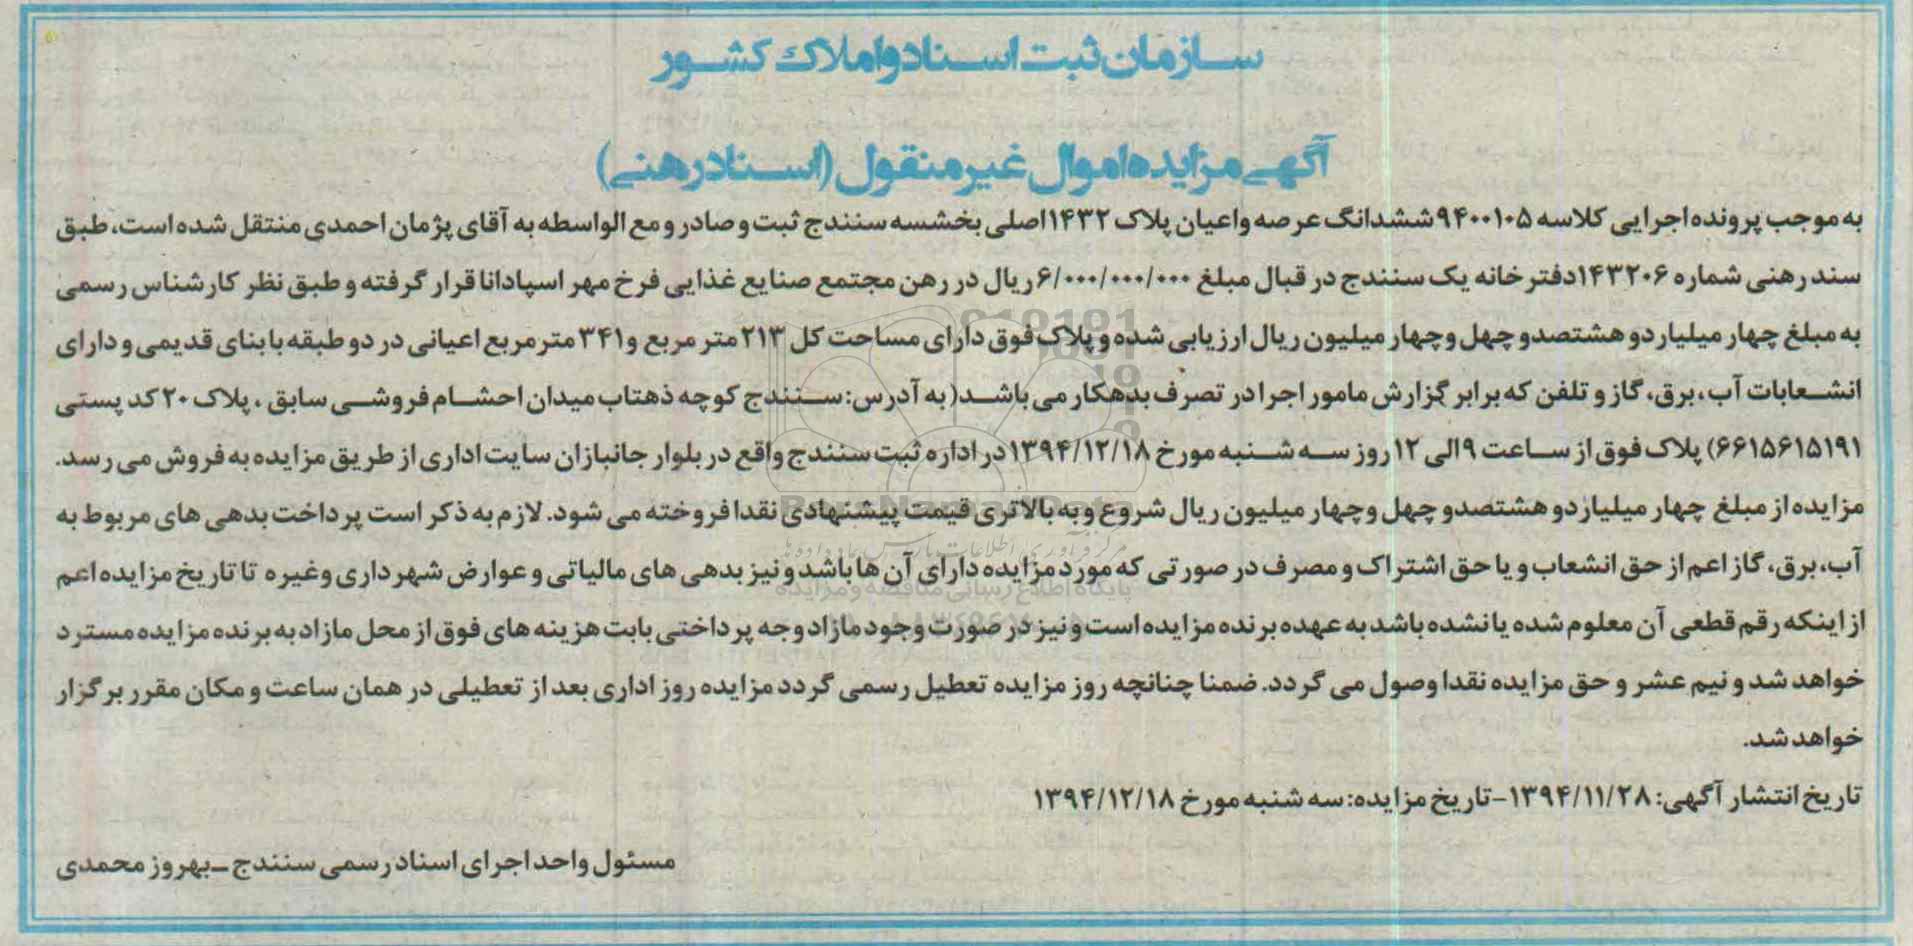 سازمان ثبت اسناد و املاک کشور
آگهی مزایده اموال غیر منقول (اسناد رهنی)
به موجب پرونده اجرایی کلاسه ۹۴۰۰۱۰۵ ششدانگ عرصه و اعیان پلاک ۱۴۳۲ اصلی بخش سه سنندج ثبت و صادر و مع الواسطه به آقای پژمان احمدی منتقل شده است، طبق
سند رهنی شماره ۱۴۳۲۰۶ دفترخانه یک سنندج در قبال مبلغ ۶/۰۰۰/۰۰۰/۰۰۰ ریال در رهن مجتمع صنایع غذایی فرخ مهر اسپادانا قرار گرفته و طبق نظر کارشناس رسمی
به مبلغ چهار میلیارد و هشتصد و چهل و چهار میلیون ریال ارزیابی شده و پلاک فوق دارای مساحت کل ۲۱۳ متر مربع و ۳۴۱ متر مربع اعیانی در دو طبقه با بنای قدیمی و دارای
انشعابات آب، برق، گاز و تلفن که برابر گزارش مامور اجرا در تصرف بدهکار می باشد( به آدرس: سنندج کوچه ذهتاب میدان احشام فروشی سابق ، پلاک ۲۰ کد پستی
۶۶۱۵۶۱۵۱۹۱) پلاک فوق از ساعت ۹ الی ۱۲ روز سه شنبه مورخ ۱۳۹۴/۱۲/۱۸ در اداره ثبت سنندج واقع در بلوار جانبازان سایت اداری از طریق مزایده به فروش می رسد.
مزایده از مبلغ چهار میلیارد و هشتصد و چهل و چهار میلیون ریال شروع و به بالاتری قیمت پیشنهادی نقدا فروخته می شود. لازم به ذکر است پرداخت بدهی های مربوط به
آب، برق، گاز اعم از حق انشعاب و یا حق اشتراک و مصرف در صورتی که مورد مزایده دارای آن ها باشد و نیز بدهی های مالیاتی و عوارض شهرداری و غیره تا تاریخ مزایده اعم
از اینکه رقم قطعی آن معلوم شده یا نشده باشد به عهده برنده مزایده است و نیز در صورت وجود مازاد وجه پرداختی بابت هزینه های فوق از محل مازاد به برنده مزایده مسترد
خواهد شد و نیم عشر و حق مزایده نقدا وصول می گردد. ضمنا چنانچه روز مزایده تعطیل رسمی گردد مزایده روز اداری بعد از تعطیلی در همان ساعت و مکان مقرر برگزار
خواهد شد.
تاریخ انتشار آگهی: ۱۳۹۴/۱۱/۲۸- تاریخ مزایده: سه شنبه مورخ ۱۳۹۴/۱۲/۱۸
مسئول واحد اجرای اسناد رسمی سنندج - بهروز محمدی